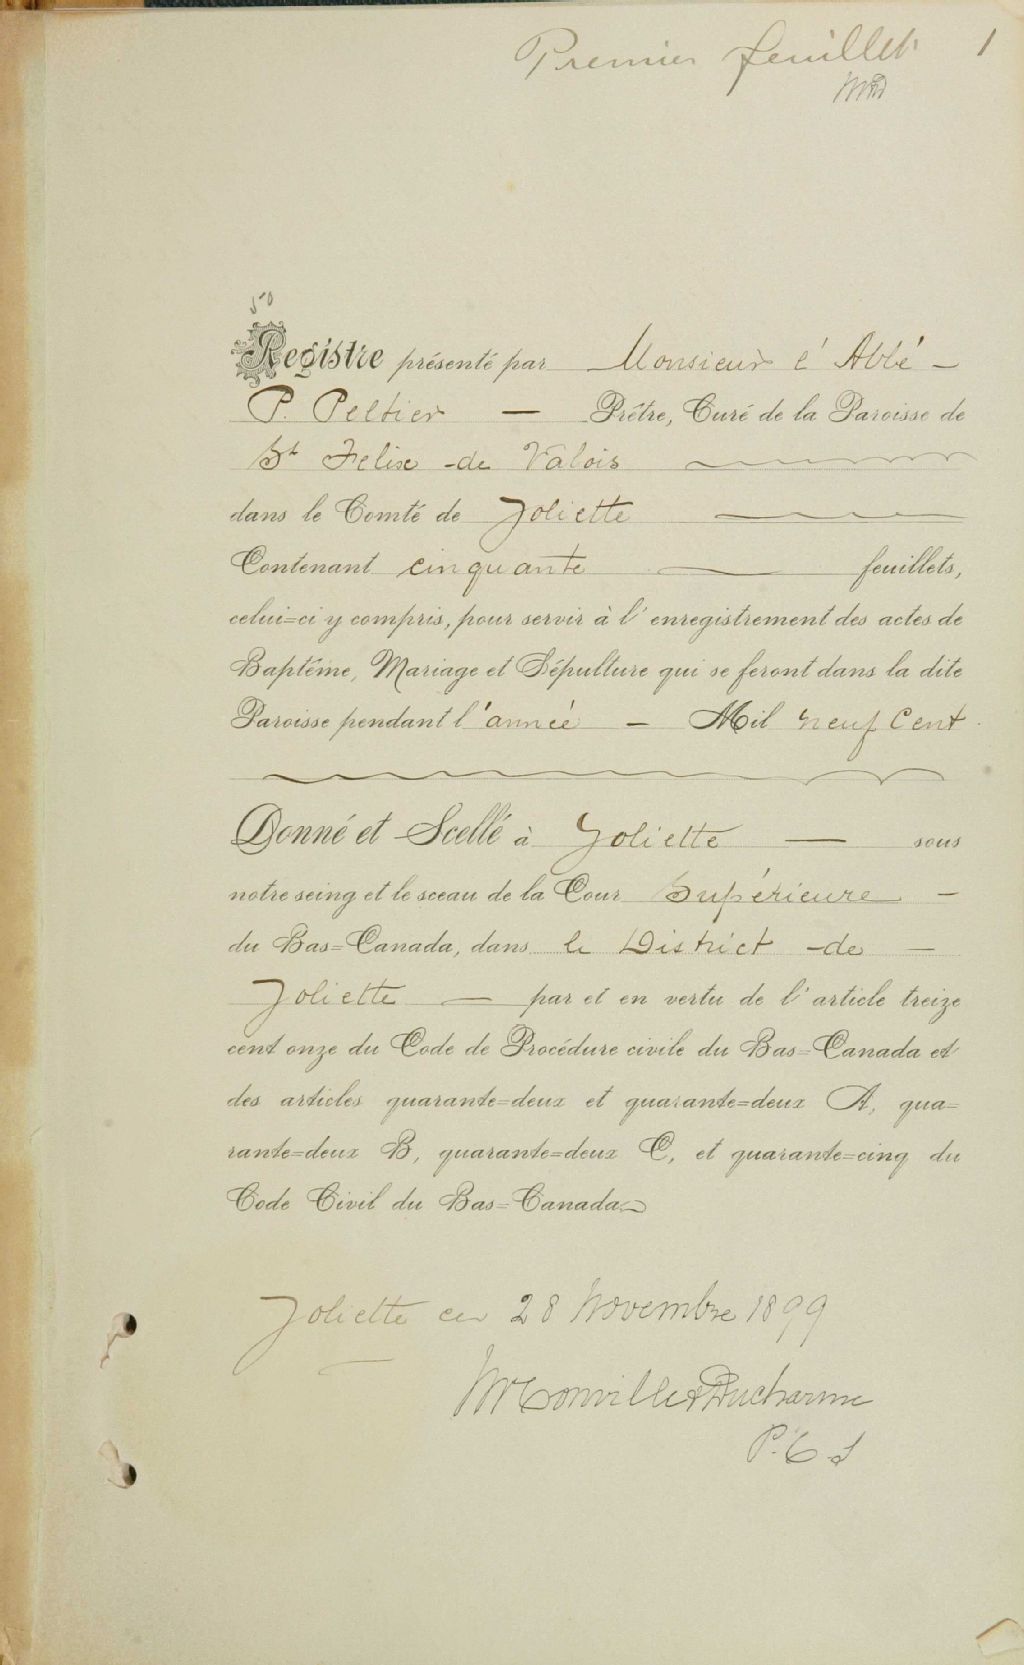 Premier feuillet 1
50
Registre présenté par Monsieur l'Abbé -
P. Peltier — Prêtre, Curé de la Paroisse de
St Felix -de Valois
dans le Comté de Joliette
Contenant cinquante feuillets,
celui=ci y compris, pour servir à l'enregistrement des actes de
Baptême, Mariage et Sépulture qui se feront dans la dite
Paroisse pendant l'année - Mil neuf Cent
Donné et Scellé à Joliette — sous
notre seing et le sceau de la Cour Supérieure -
du Bas=Canada, dans le District -de -
Joliette — par et en vertu de l'article treize
cent onze du Code de Procédure civile du Bas=Canada et
des articles quarante=deux et quarante=deux A, qua=
rante=deux B, quarante=deux C, et quarante=cinq du
Code Civil du Bas=Canada
Joliette ce 28 Novembre 1899
Ducharme
P.C.S